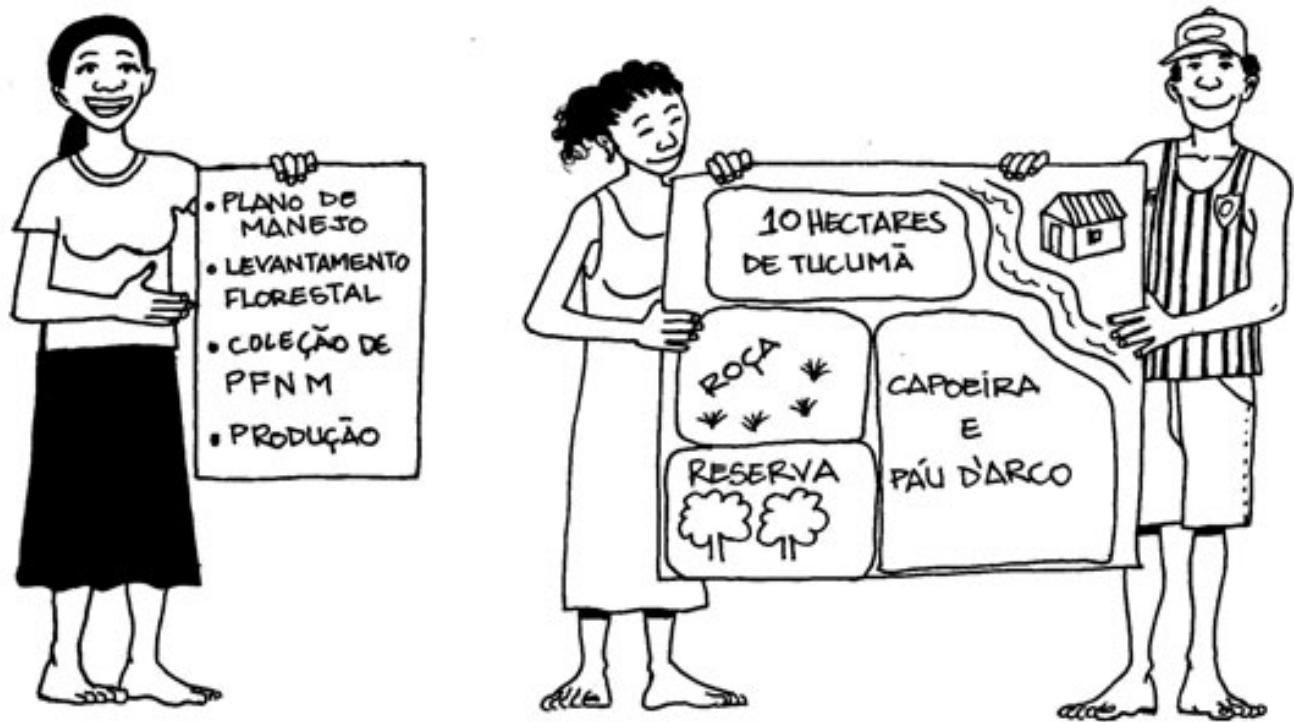 • PLANO DE
MANEJO
• LEVANTAMENTO
FLORESTAL
• COLEÇÃO DE
PFNM
• PRODUÇÃO
10 HECTARES
DE TUCUMÃ
ROÇA
RESERVA
CAPOEIRA
E
PÁU D'ARCO